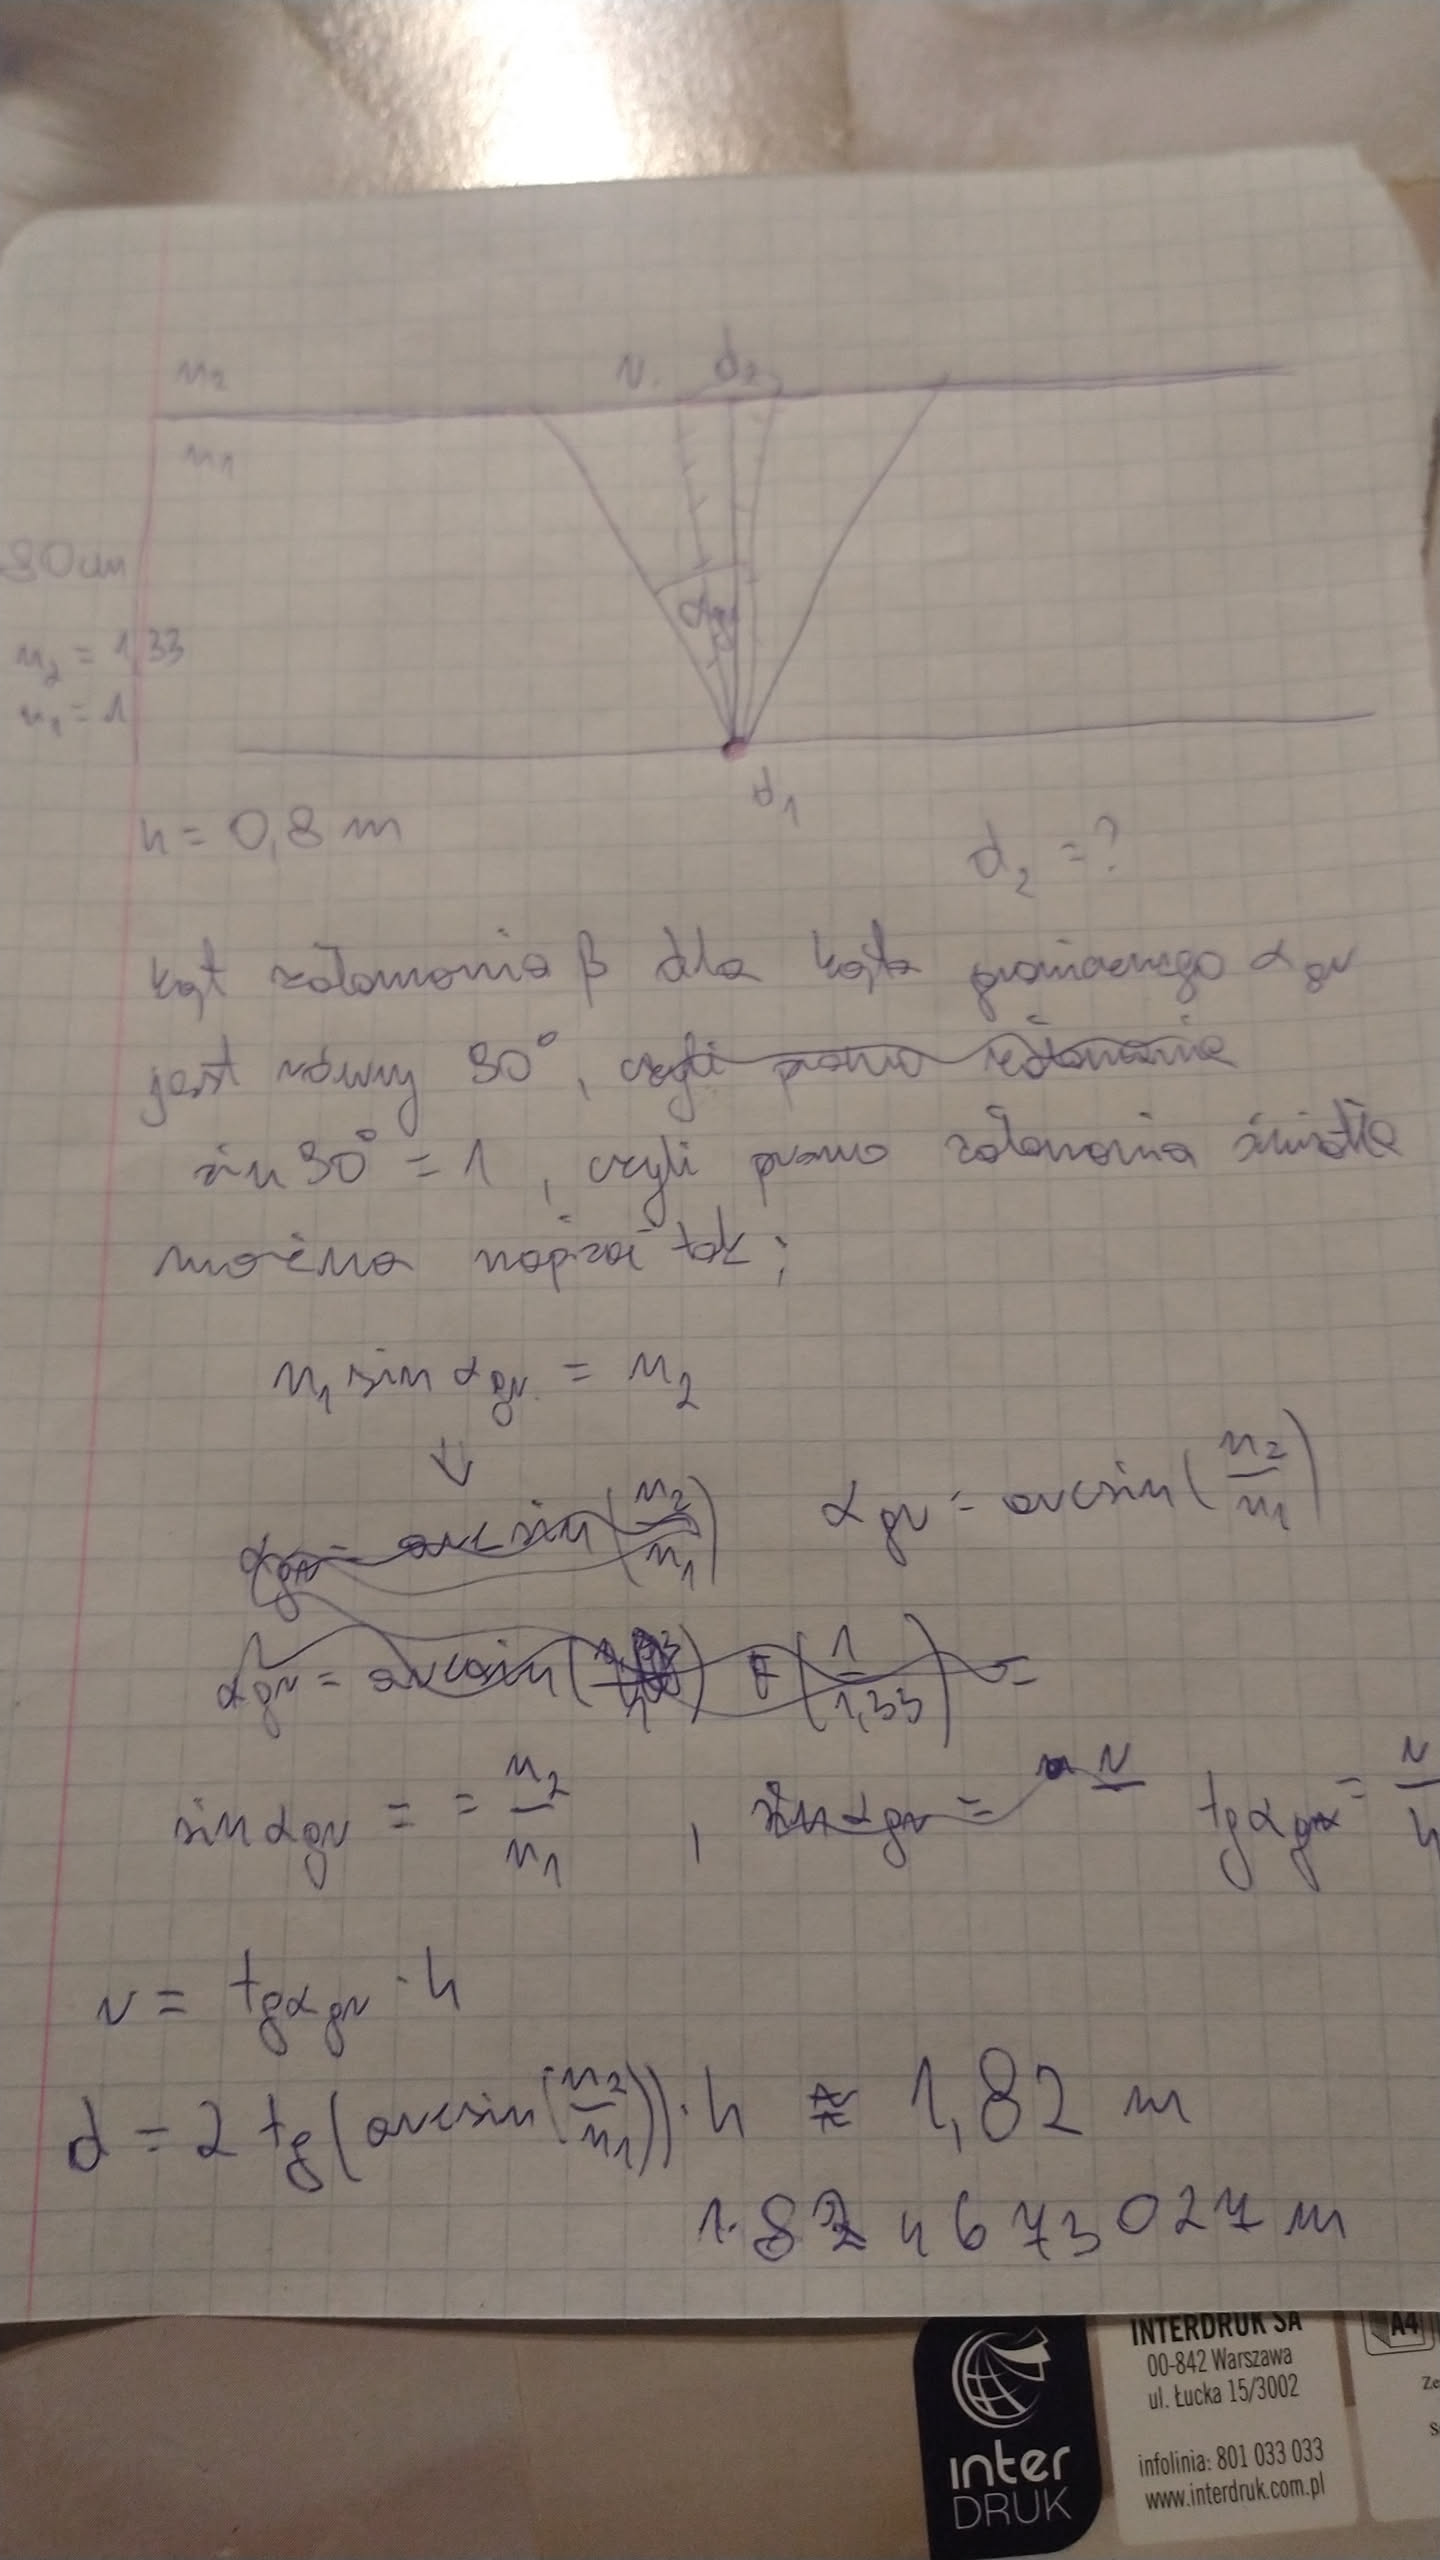 n₂ r. d₂
n₁
80cm
αgr
n₂ = 1,33
n₁ = 1
d₁
h = 0,8 m
d₂ = ?
kąt załamania β dla kąta granicznego αgr
jest równy 90°, czyli prawo załamania
sin 90° = 1, czyli prawo załamania światła
można napisać tak:
n₁ sin αgr = n₂
⇓
αgr = arcsin(n₂/n₁) αgr = arcsin(n₂/n₁)
αgr = arcsin( ) (1/1,33) =
sin αgr = = n₂/n₁ , sin αgr = r tg αgr = r/h
r = tg αgr · h
d = 2 tg(arcsin(n₂/n₁)) · h ≈ 1,82 m
1.824673027 m
INTERDRUK SA
00-842 Warszawa
ul. Łucka 15/3002
infolinia: 801 033 033
www.interdruk.com.pl
inter
DRUK
A4